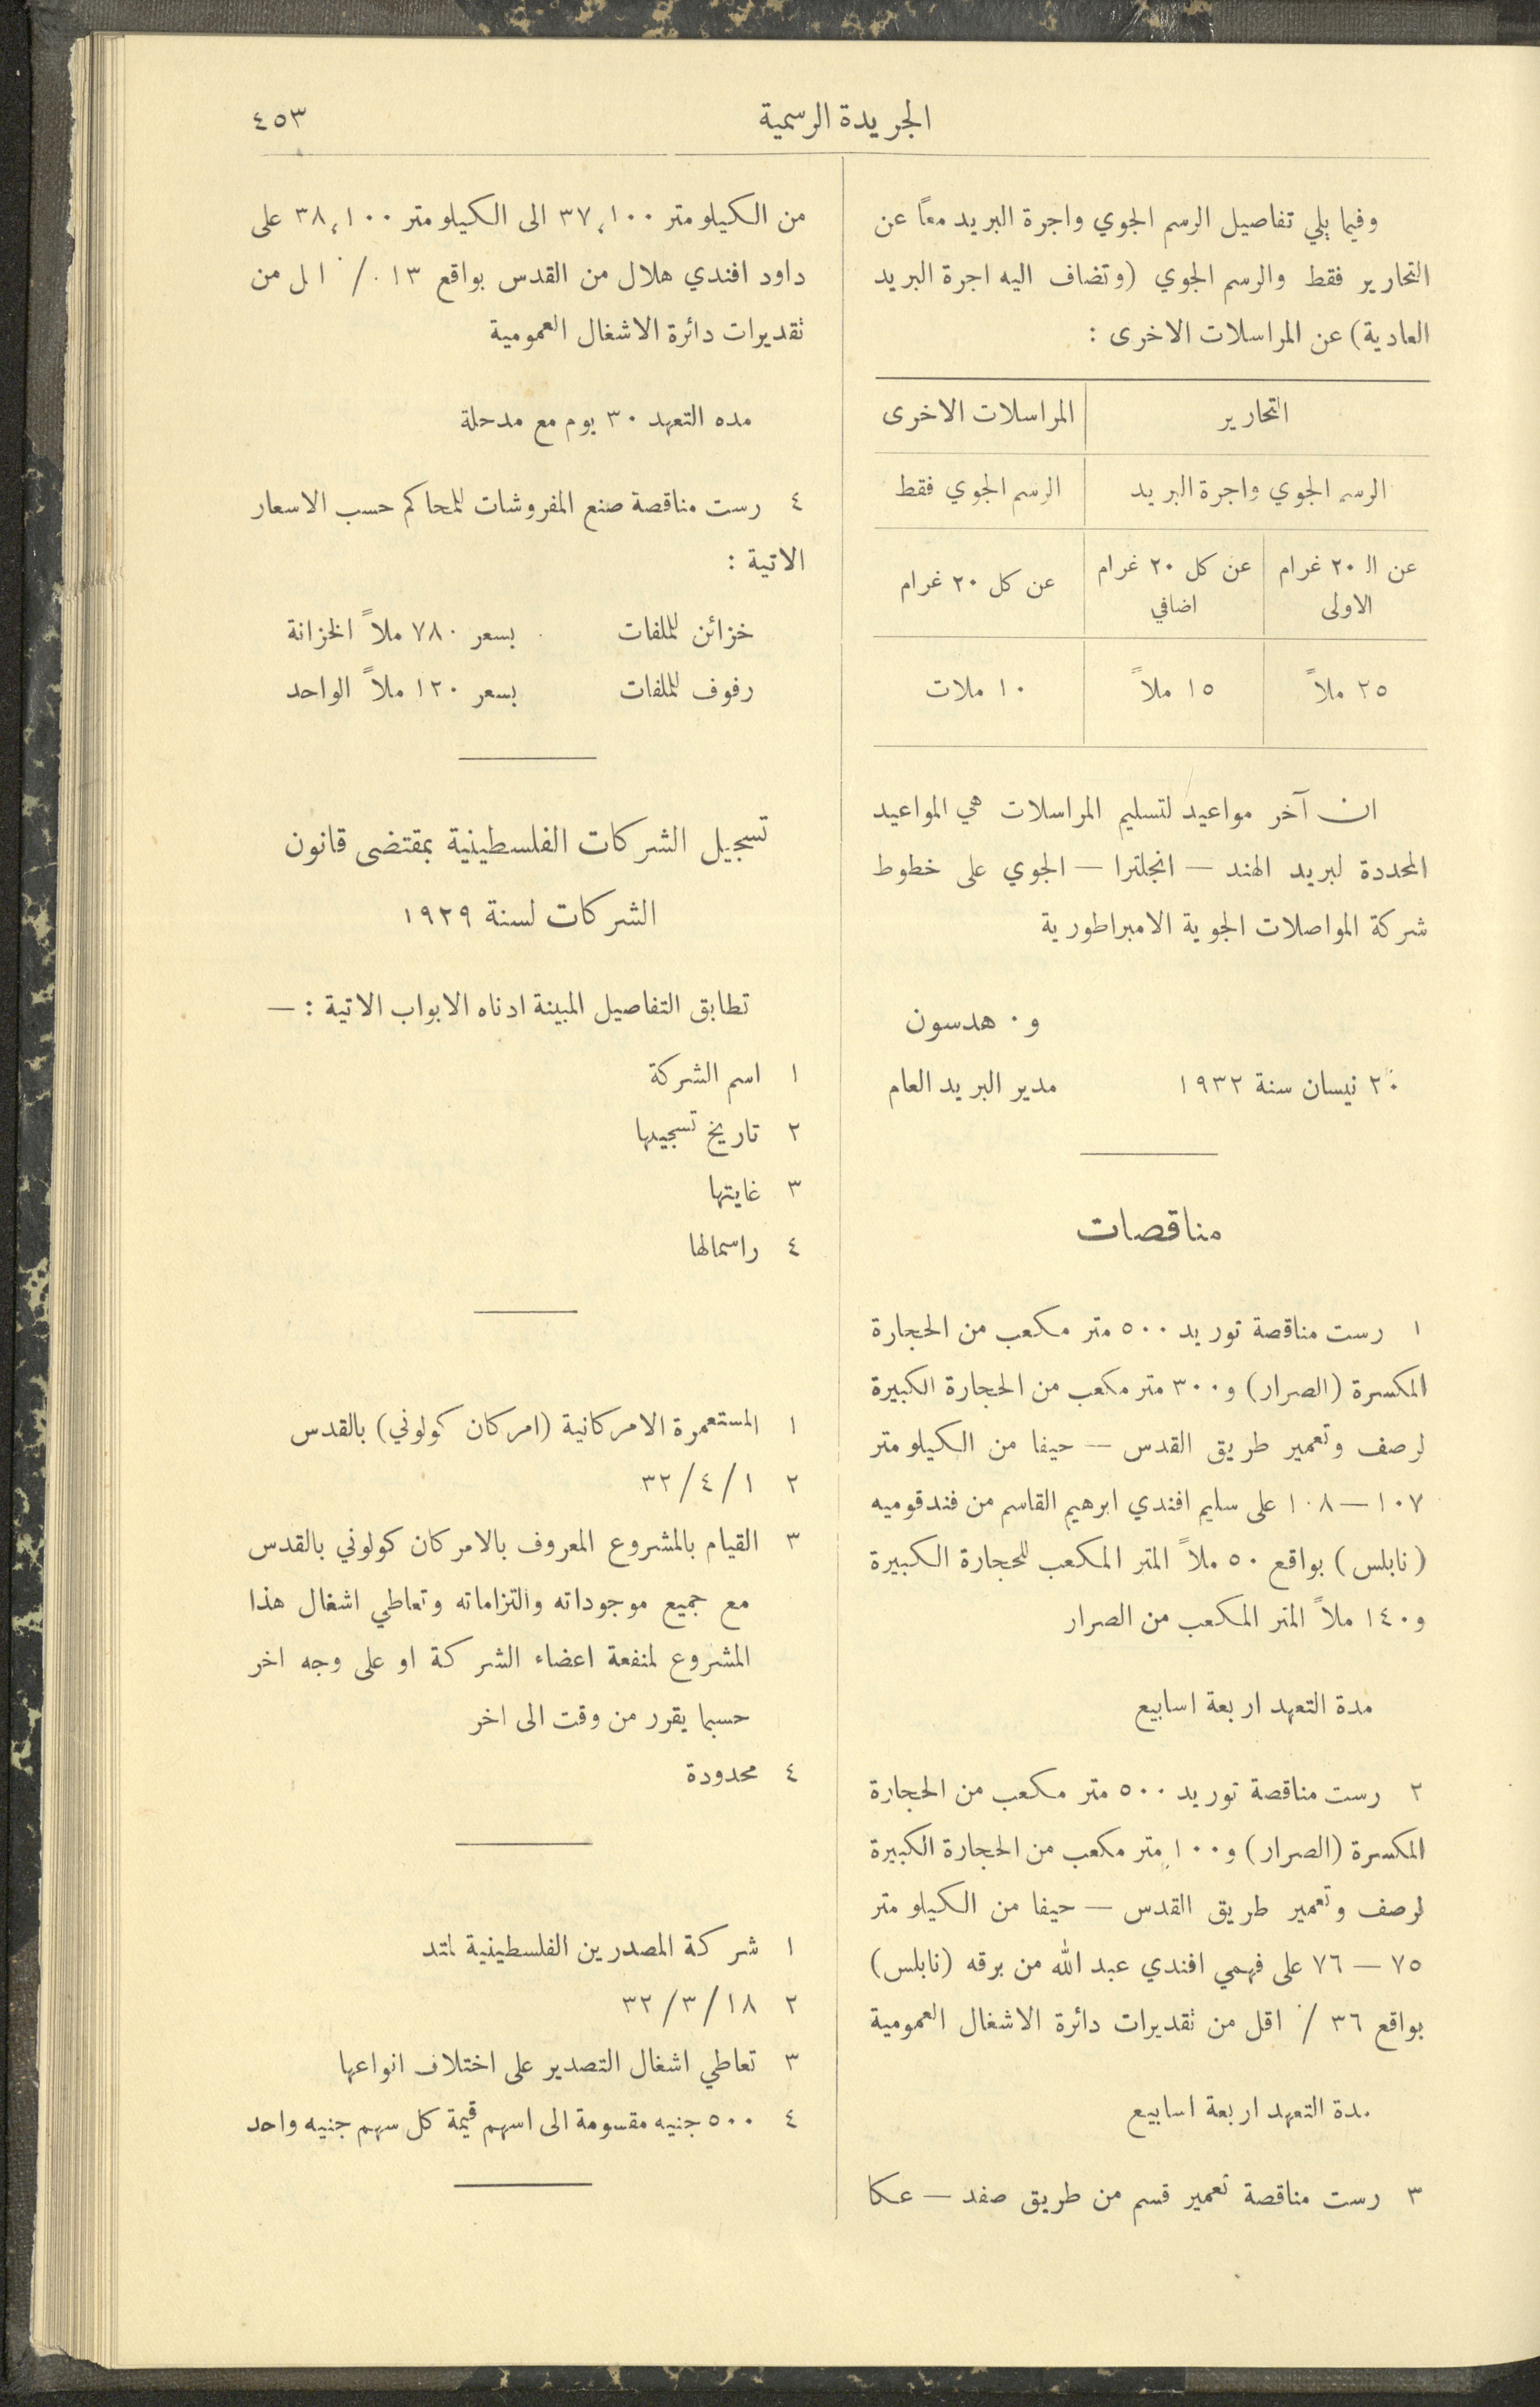 الجريدة الرسمية
٤٥٣
وفيما يلي تفاصيل الرسم الجوي واجرة البريد معاً عن
التحارير فقط والرسم الجوي (وتضاف اليه اجرة البريد
العادية) عن المراسلات الاخرى :
التحارير
المراسلات الاخرى
الرسم الجوي واجرة البريد
الرسم الجوي فقط
عن الـ ٢٠ غرام
الاولى
عن كل ٢٠ غرام
اضافي
عن كل ٢٠ غرام
٢٥ ملاً
١٥ ملاً
١٠ ملات
ان آخر مواعيد لتسليم المراسلات هي المواعيد
المحددة لبريد الهند — انجلترا — الجوي على خطوط
شركة المواصلات الجوية الامبراطورية
و٠ هدسون
٢٠ نيسان سنة ١٩٣٢
مدير البريد العام
مناقصات
١ رست مناقصة توريد ٥٠٠ متر مكعب من الحجارة
المكسرة (الصرار) و٣٠٠ متر مكعب من الحجارة الكبيرة
لرصف وتعمير طريق القدس — حيفا من الكيلو متر
١٠٧ — ١٠٨ على سليم افندي ابرهيم القاسم من فندقوميه
(نابلس) بواقع ٥٠ ملاً المتر المكعب للحجارة الكبيرة
و١٤٠ ملاً المتر المكعب من الصرار
مدة التعهد اربعة اسابيع
٢ رست مناقصة توريد ٥٠٠ متر مكعب من الحجارة
المكسرة (الصرار) و١٠٠ متر مكعب من الحجارة الكبيرة
لرصف وتعمير طريق القدس — حيفا من الكيلو متر
٧٥ — ٧٦ على فهمي افندي عبد الله من برقه (نابلس)
بواقع ٣٦ ٪ اقل من تقديرات دائرة الاشغال العمومية
مدة التعهد اربعة اسابيع
٣ رست مناقصة تعمير قسم من طريق صفد — عكا
من الكيلو متر ٣٧،١٠٠ الى الكيلو متر ٣٨،١٠٠ على
داود افندي هلال من القدس بواقع ١٣ ٪ من
تقديرات دائرة الاشغال العمومية
مده التعهد ٣٠ يوم مع مدحلة
٤ رست مناقصة صنع المفروشات للمحاكم حسب الاسعار
الاتية :
خزائن للملفات بسعر ٧٨٠ ملاً الخزانة
رفوف للملفات بسعر ١٢٠ ملاً الواحد
تسجيل الشركات الفلسطينية بمقتضى قانون
الشركات لسنة ١٩٢٩
تطابق التفاصيل المبينة ادناه الابواب الاتية : —
١ اسم الشركة
٢ تاريخ تسجيلها
٣ غايتها
٤ راسمالها
١ المستعمرة الامركانية (امركان كولوني) بالقدس
٢ ٣٢/٤/١
٣ القيام بالمشروع المعروف بالامركان كولوني بالقدس
مع جميع موجوداته والتزاماته وتعاطي اشغال هذا
المشروع لمنفعة اعضاء الشركة او على وجه اخر
حسبما يقرر من وقت الى اخر
٤ محدودة
١ شركة المصدرين الفلسطينية لمتد
٢ ٣٢/٣/١٨
٣ تعاطي اشغال التصدير على اختلاف انواعها
٤ ٥٠٠ جنيه مقسومة الى اسهم قيمة كل سهم جنيه واحد